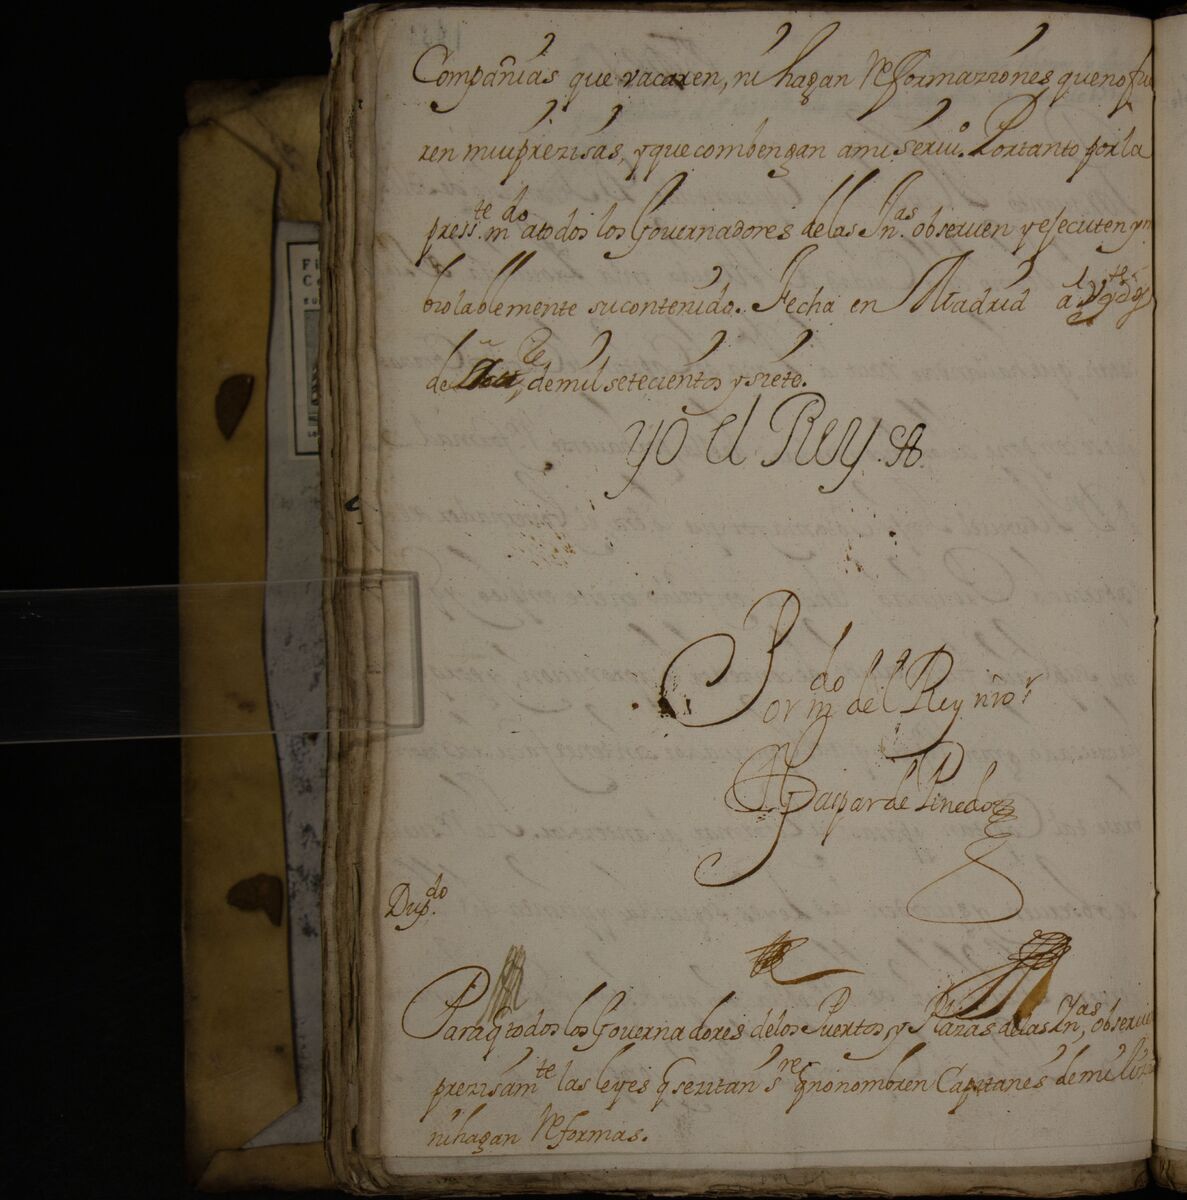 Compañias que vacaren, ni hagan reformaziones que no fue
ren mui prezisas, y que combengan a mi seruiº. Por tanto por la
press.te m.do a todos los Gouernadores de las Jn.as obseruen y ejecuten yn
biolablemente su contenido. Fecha en Madrid a
de mil setecientos y siete.
yo el Rey
Por m.do del Rey nro s.r
Gaspar de Pinedo
Dup.do
Para q todos los Gouernadores de los Puertos y Plazas de las Yn.as, obseruen
prezisam.te las leyes q se zitan s.re q no nombren Capitanes de mili
ni hagan reformas.
Fi
C